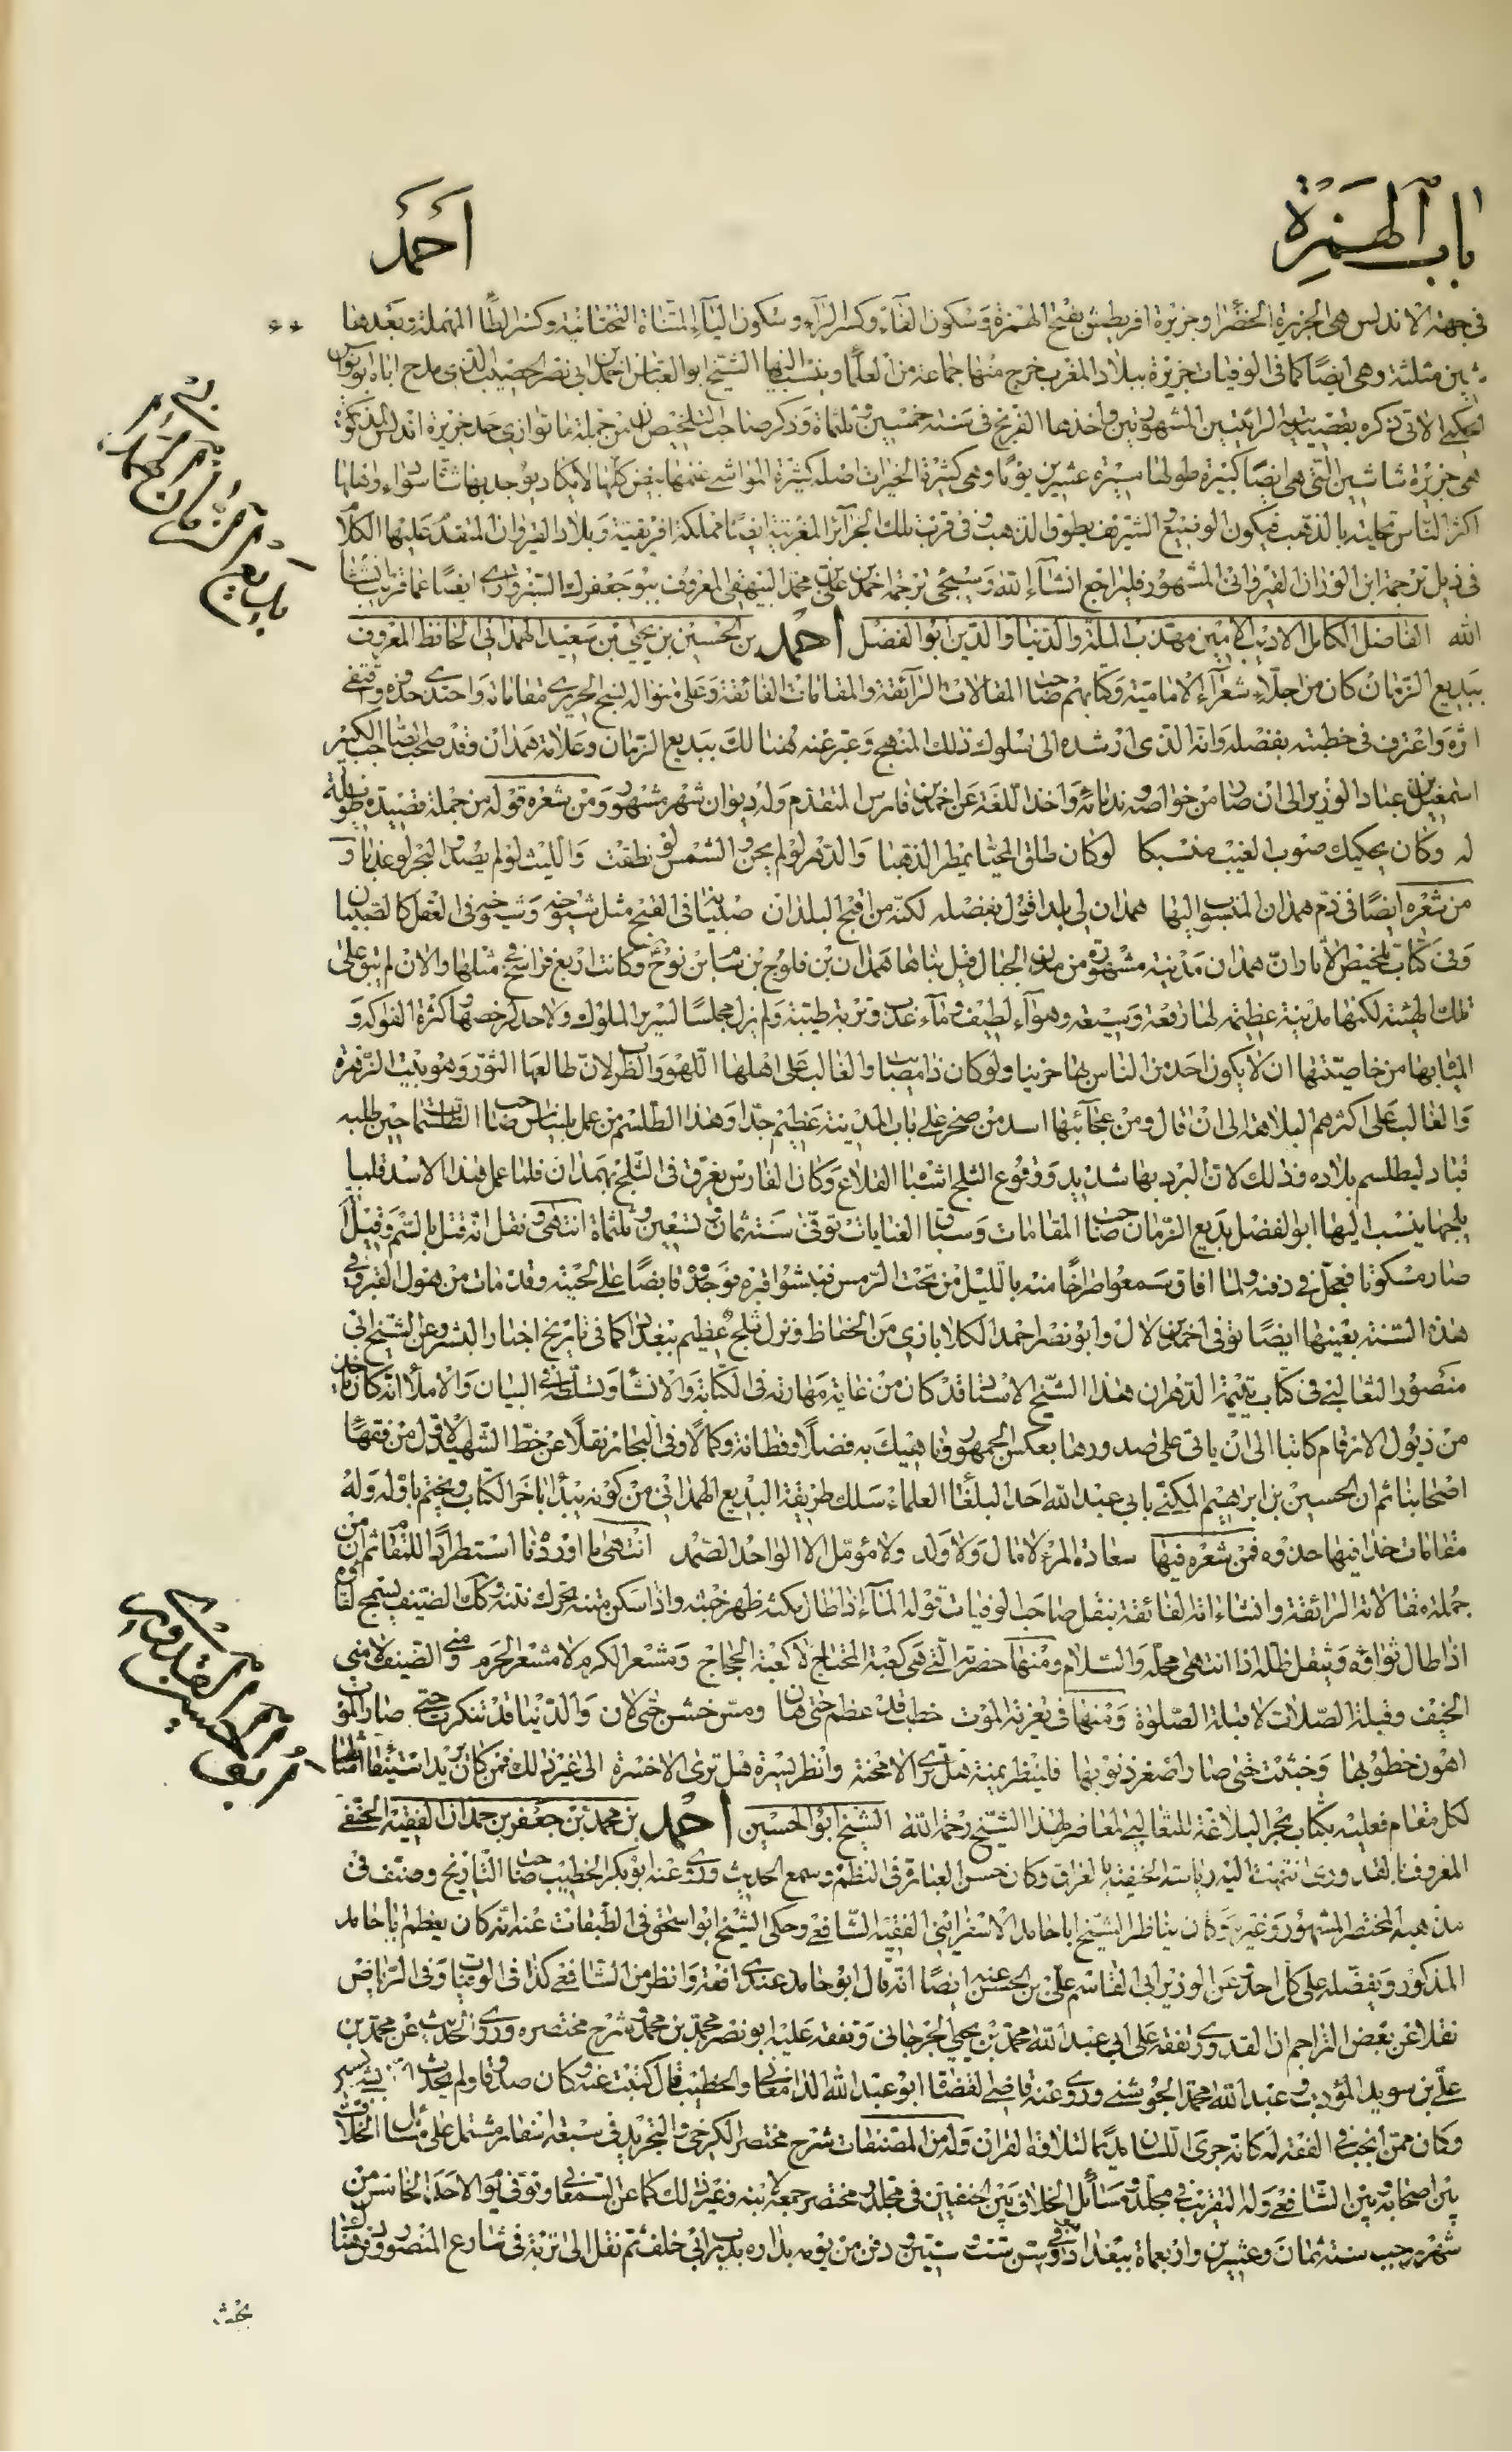 باب الهمزة
أحمد
في جهة الاندلس هي الجزيرة الخضراء وجزيرة اقريطش بفتح الهمزة وسكون القاف وكسر الراء وسكون الياء المثناة التحتانية وكسر الطاء المهملة وبعدها
شين مثلثة وهي ايضا كما في الوفيات جزيرة ببلاد المغرب خرج منها جماعة من العلماء وينسب اليها الشيخ ابو العباس احمد بن ابي نصر الخصيب الذي مدح اباه ابو نواس
الحكمي الاتي ذكره بقصيدتيه الرائيتين المشهورتين واخذها الفرنج في سنة خمسين وثلثمائة وذكر صاحب التلخيص ان من جملة ما توازى حد جزيرة اندلس المذكورة
هي جزيرة شاشين التي هي ايضا كبيرة طولها مسيرة عشرين يوما وهي كثيرة الخيرات اصله كثيرة المواشي غنمها بيض كلها لا يكاد يوجد بها شاة سوداء واهلها
اكثر الناس تحلية بالذهب فيكون الوضيع والشريف بطوق الذهب وفي قرب تلك الجزائر المغربية ايضا مملكة افريقية وبلاد القيروان المتقدم عليها الكلام
في ذيل ترجمة ابن الوزان القيرواني المشهور فليراجع انشاء الله وسيجئ ترجمة احمد بن علي بن محمد البيهقي المعروف ببوجعفرك السبزواري ايضا عما قريب انشاء
الله الفاضل الكامل الاديب الامين مهذب الملة والدنيا والدين ابو الفضل احمد بن الحسين بن يحيى بن سعيد الهمداني الحافظ المعروف
ببديع الزمان كان من اجلاء شعراء الامامية وكتابهم صاحب المقالات الرائقة والمقامات الفائقة وعلى منواله نسج الحريري مقاماته واحتذى حذوه واقتفى
اثره واعترف في خطبته بفضله وانه الذي ارشده الى سلوك ذلك المنهج وعبر عنه هنالك ببديع الزمان وعلامة همذان وقد صاحب الصاحب الكبير
اسمعيل بن عباد الوزير الى ان صار من خواصه وندمائه واخذ اللغة عن احمد بن فارس المتقدم وله ديوان شعر مشهور ومن شعره قوله من جملة قصيدة طويلة
له وكان يحكيك صوب الغيث منسكبا لو كان طلق المحيا يمطر الذهبا والدهر لو لم يخن والشمس لو نطقت والليث لو لم يصد والبحر لو عذبا و
من شعره ايضا في ذم همدان المنسوب اليها همدان لي بلد اقول بفضله لكنه من اقبح البلدان صبيانه في القبح مثل شيوخه وشيوخه في العقل كالصبيان
وفي كتاب تلخيص الاثار ان همدان مدينة مشهورة من مدن الجبال قيل بناها همدان بن فلوج بن سام بن نوح وكانت اربع فراسخ في مثلها والان لم تبق على
تلك الهيئة لكنها مدينة عظيمة لها رقعة وسيعة وهواء لطيف وماء عذب وتربة طيبة ولم تزل مجلسا لسرير الملوك ولا حد لرخصها وكثرة الفواكه و
المياه بها من خاصيتها ان لا يكون احد من الناس بها حزينا ولو كان ذا مصائب والغالب على اهلها اللهو والطرب لان طالعها الثور وهو بيت الزهرة
والغالب على اكثرهم البلاهة الى ان قال ومن عجائبها اسد من صخر على باب المدينة عظيم جدا وهذا الطلسم من عمل بليناس صاحب الطلسمات حين طلبه
قباد ليطلسم بلاده وذلك لان البرد بها شديد ووقوع الثلج اشتباه القلاع وكان الفارس يغرق في الثلج بهمدان فلما عمل هذا الاسد قل بها
ثلجها ينسب اليها ابو الفضل بديع الزمان صاحب المقامات وسباق الغايات توفي سنة ثمان وتسعين وثلثمائة انتهى ونقل انه قتل بالسم وقيل
صار مسكوتا فعجل في دفنه ولما افاق وسمعوا صراخا منه بالليل من تحت الرمس فنبشوا قبره فوجدوه قابضا على لحيته وقد مات من هول القبر وفي
هذه السنة بعينها ايضا توفي احمد بن لال وابو نصر احمد الكلاباذي من الحفاظ ونزل ثلج عظيم ببغداد كما في تاريخ اخبار البشر وعن الشيخ ابي
منصور الثعالبي في كتاب يتيمة الدهر ان هذا الشيخ الاستاذ قد كان من غاية مهارته في الكتابة والانشاء وتسلطه في البيان والاملاء انه كان ياخذ
من ذيول الارقام كاتبا الى ان ياتي على صدورها بعكس الجمهور وناهيك به فضلا وفطانة وكمالا وفي البحار نقلا عن خط الشهيد الاول من فقهاء
اصحابنا ثم ان الحسين بن ابرهيم المكنى بابي عبد الله احد البلغاء العلماء سلك طريقة البديع الهمداني من كونه يبدأ باخر الكتاب ويختم باوله وله
مقامات حذا فيها حذوه فمن شعره فيها سعادة المرء لا مال ولا ولد ولا مؤمل الا الواحد الصمد انتهى ما اوردنا استطرادا للمقام ثم ان من
جملة مقالاته الرائقة وانشاءاته الفائقة بنقل صاحب الوفيات قوله الماء اذا طال مكثه ظهر خبثه واذا سكن متنه تحرك نتنه وكذلك الضيف يسمج لقاؤه
اذا طال ثواؤه ويثقل ظله اذا انتهى محله والسلام ومنها حضرته التي هي كعبة المحتاج لا كعبة الحجاج ومشعر الكرم لا مشعر الحرم ومنى الضيف لا منى
الخيف وقبلة الصلات لا قبلة الصلوة ومنها في تعزية الموت خطب قد عظم حتى هان ومس خشن حتى لان والدنيا قد تنكرت حتى صار الموت
اهون خطوبها وخبثت حتى صار اصغر ذنوبها فلينظر يمنة هل ترى الا محنة وانظر يسرة هل ترى الا حسرة الى غير ذلك فمن كان يريد استيفاء امثالها
لكل مقام فعليه بكتاب سحر البلاغة للثعالبي المعاصر لهذا الشيخ رحمة الله الشيخ ابو الحسين احمد بن محمد بن جعفر بن حمدان الفقيه الحنفي
المعروف بالقدوري انتهت اليه رياسة الحنفية بالعراق وكان حسن العبارة في النظم وسمع الحديث وروى عنه ابو بكر الخطيب صاحب التاريخ وصنف في
مذهبه المختصر المشهور وغيره وكان يناظر الشيخ ابا حامد الاسفرايني الفقيه الشافعي وحكى الشيخ ابو اسحق في الطبقات عنه انه كان يعظم ابا حامد
المذكور ويفضله على كل احد وعن الوزير ابي القاسم علي بن الحسن عنه ايضا انه قال ابو حامد عندي افقه وانظر من الشافعي كذا في الوفيات وفي الرياض
نقلا عن بعض التراجم ان القدوري تفقه على ابي عبد الله محمد بن يحيى الجرجاني وتفقه عليه ابو نصر محمد بن محمد وشرح مختصره وروى الحديث عن محمد بن
علي بن سويد المؤدب وعبد الله محمد الجوشني وروى عنه قاضي القضاة ابو عبد الله الدامغاني والخطيب قال كتبت عنه وكان صدوقا ولم يحدث الا بشئ يسير
وكان ممن انجب في الفقه له كانه جرى اللسان مديما لتلاوة القران وله من المصنفات شرح مختصر الكرخي والتجريد في سبعة اسفار مشتمل على مسائل الخلاف
بين اصحابه وبين الشافعي وله التقريب في مجلد ومسائل الخلاف بين الحنفيين في مجلد ومختصر جمعه لابنه وغير ذلك كما عن السمعاني وتوفي يوم الاحد الخامس من
شهر رجب سنة ثمان وعشرين واربعمائة ببغداد ودفن من يومه بداره بدرب ابي خلف ثم نقل الى تربة في شارع المنصور ودفن هناك
بديع الزمان الهمداني
ابو الحسين القدوري
بجنب